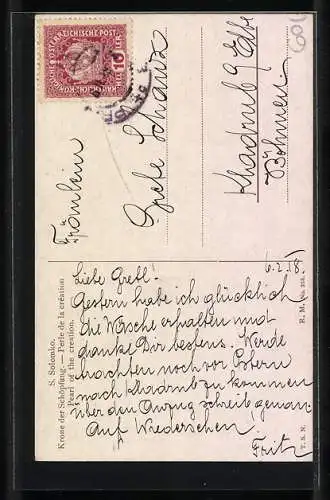 KAISERLICHE KÖNIGLICHE ÖSTERREICHISCHE POST
10
601
Fräulein
Grete Schanz
Kladrub a/ Elbe
Böhmen
6.2.18.
Liebe Gretl!
Gestern habe ich glücklich
die Wäsche erhalten und
danke Dir bestens. Werde
trachten noch vor Ostern
nach Kladrub zu kommen
über den Anzug schreib genau.
Auf Wiedersehen.
Fritz
S. Solomko.
Krone der Schöpfung. — Perle de la création
Pearl of the creation.
T. S. N. R. M. No.